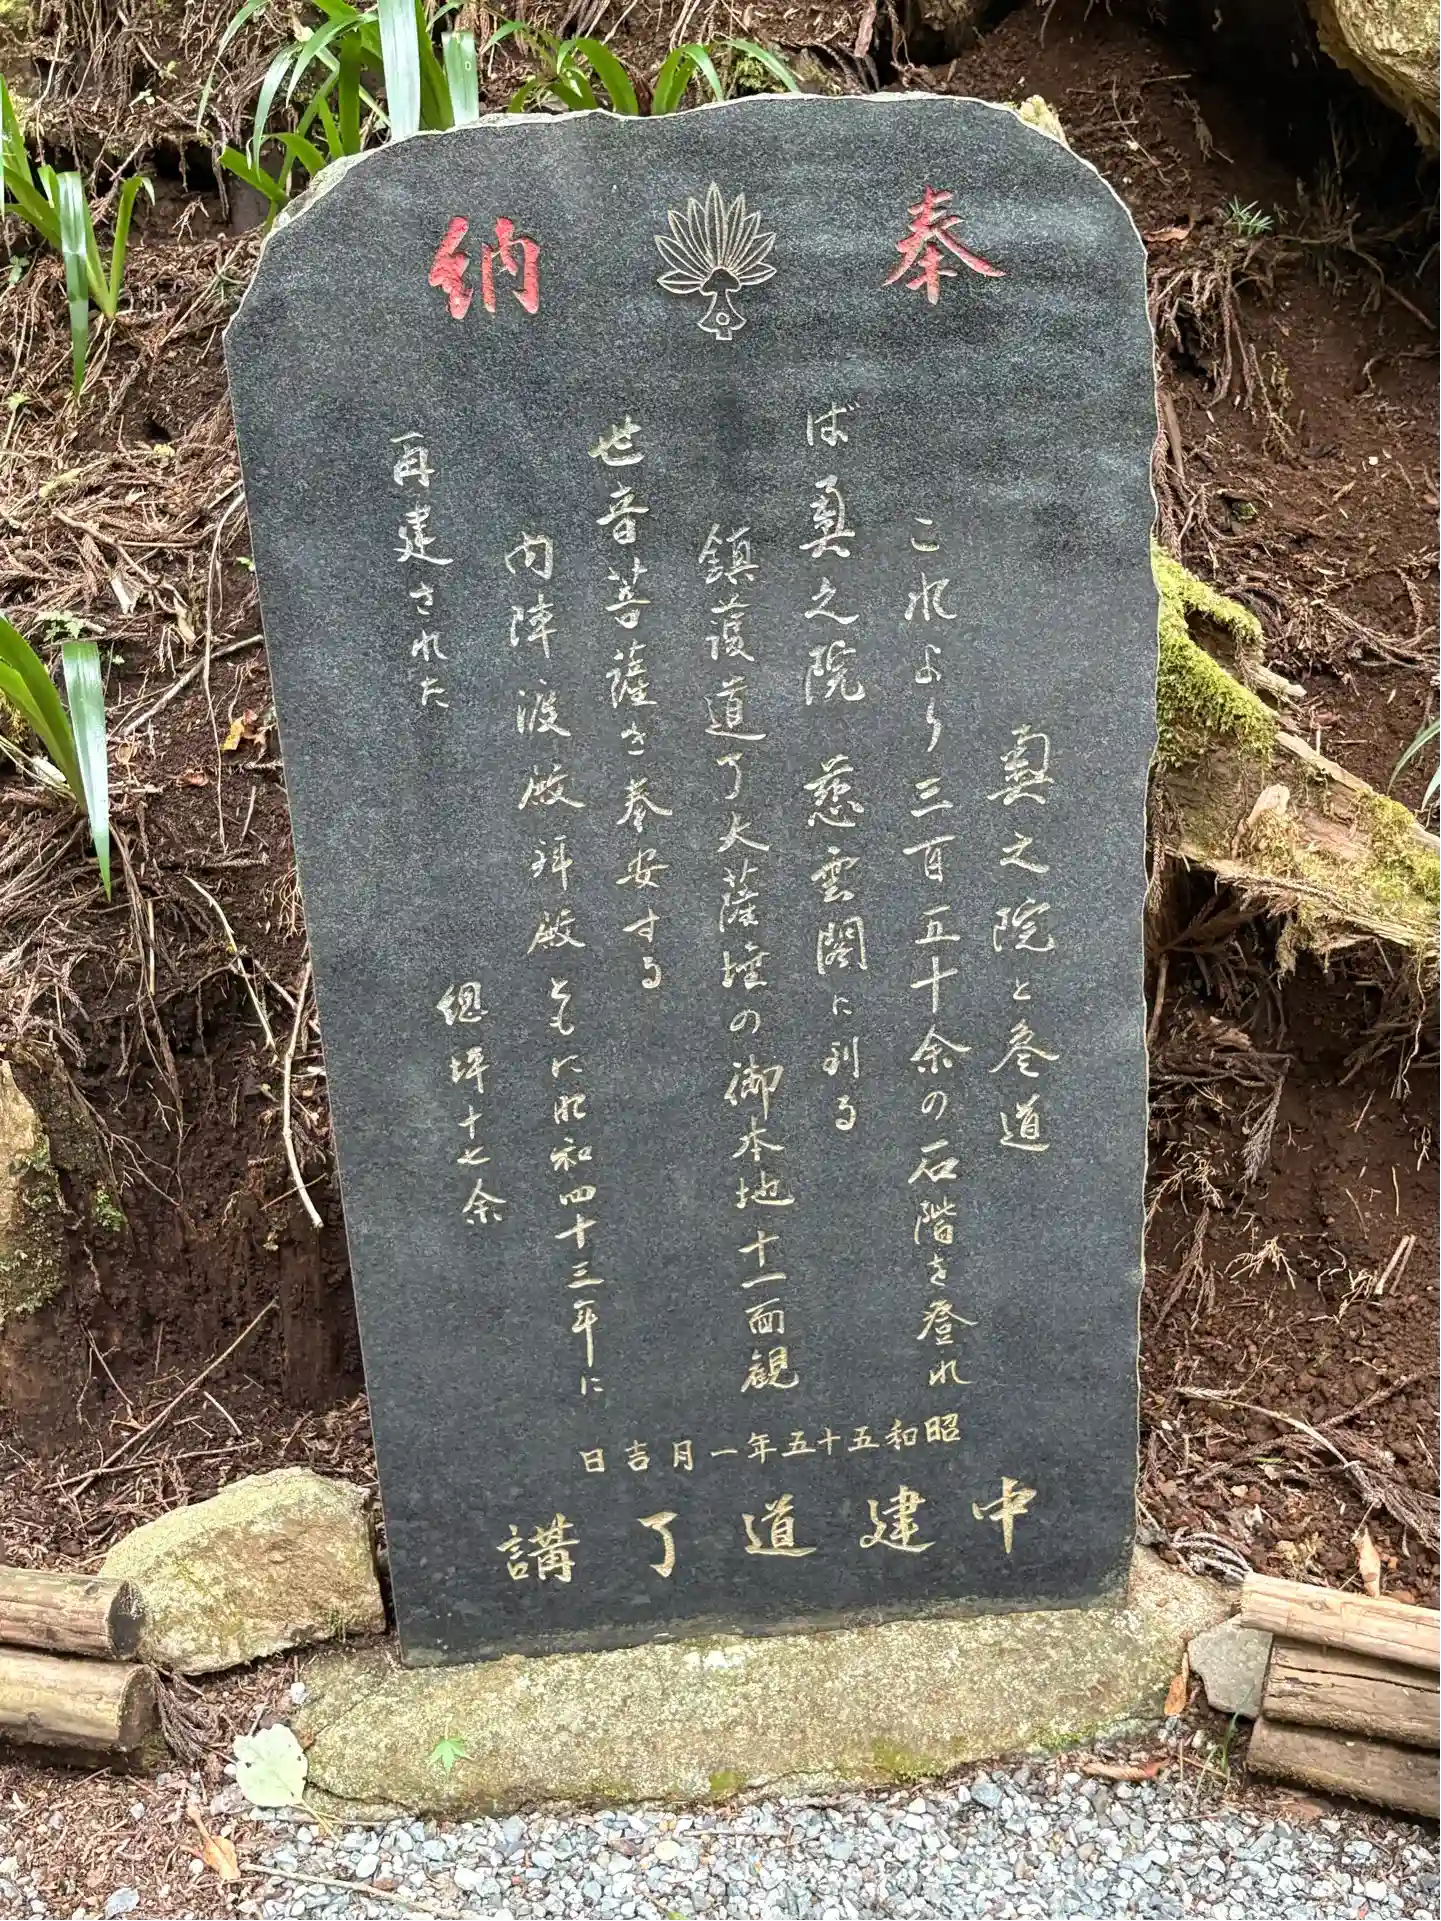 奉納
奥之院と参道
これより三百五十余の石階を登れ
ば奥之院慈雲閣に到る
鎮護道了大薩埵の御本地十一面観
世音菩薩を奉安する
内陣渡殿拝殿ともに昭和四十三年に
再建された
総坪十七余
昭和五十五年一月吉日
中建道了講